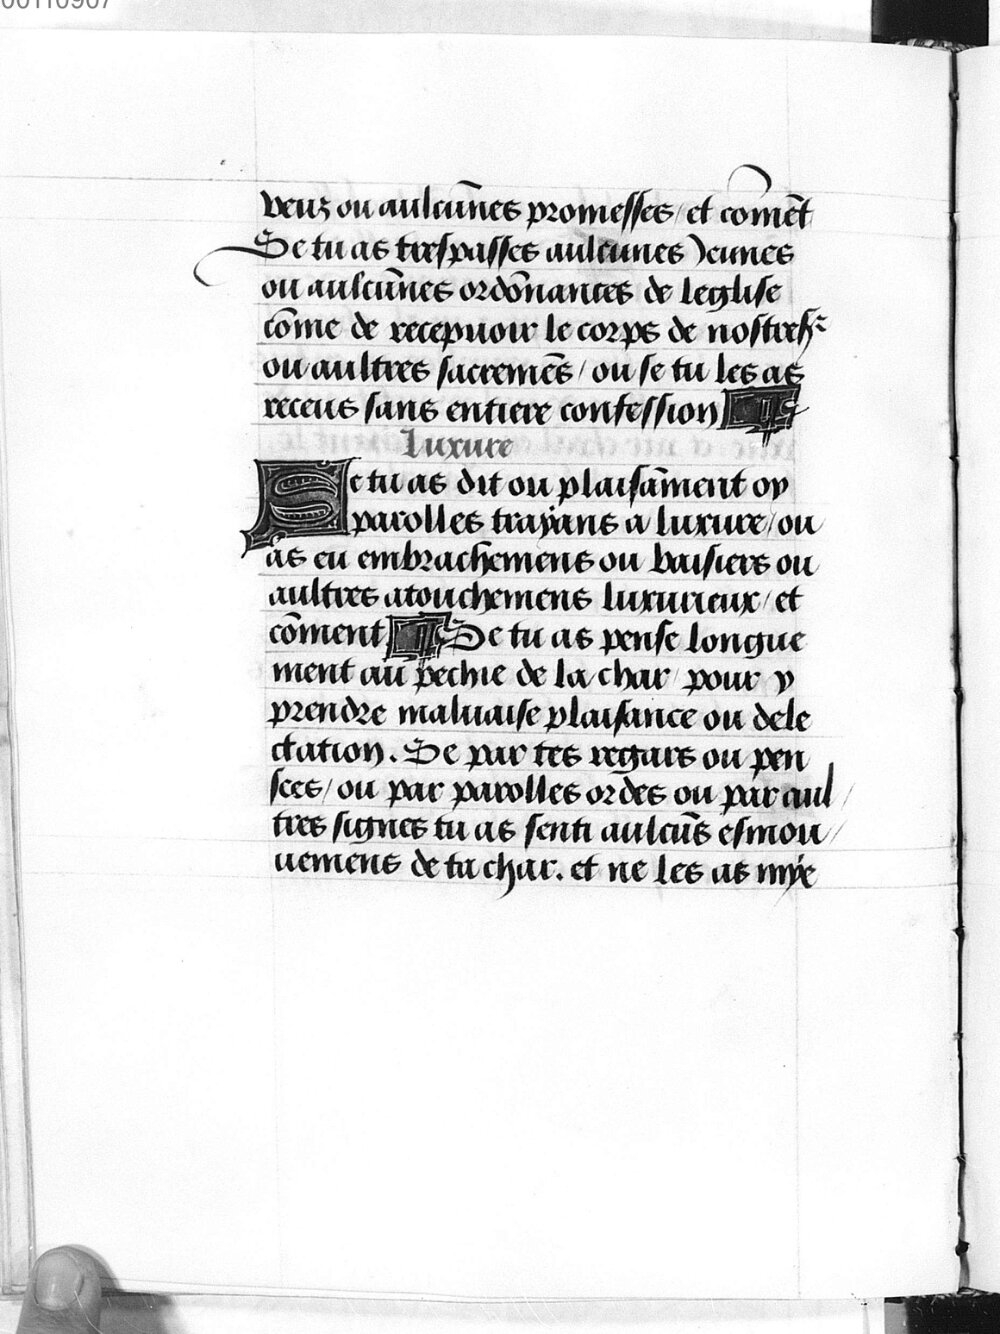 00110907
veuz ou aulcūnes promesses / et comēt
Se tu as trespasses aulcunes Jeunes
ou aulcūnes ordōnances de leglise
cōme de recepuoir le corps de nostre
ou aultres sacremēs / ou se tu les as
receus sans entiere confession
Luxure
Se tu as dit ou plaisāment oy
parolles traiians a luxure / ou
as eu embrachemens ou baisiers ou
aultres atouchemens luxurieux / et
cōment ¶ Se tu as pense longue
ment au pechie de la char / pour y
prendre maluaise plaisance ou dele
ctation. Se par tes regars ou pen
sees / ou par parolles ordes ou par aul /
tres signes tu as senti aulcūs esmou /
uemens de ta char. et ne les as mye